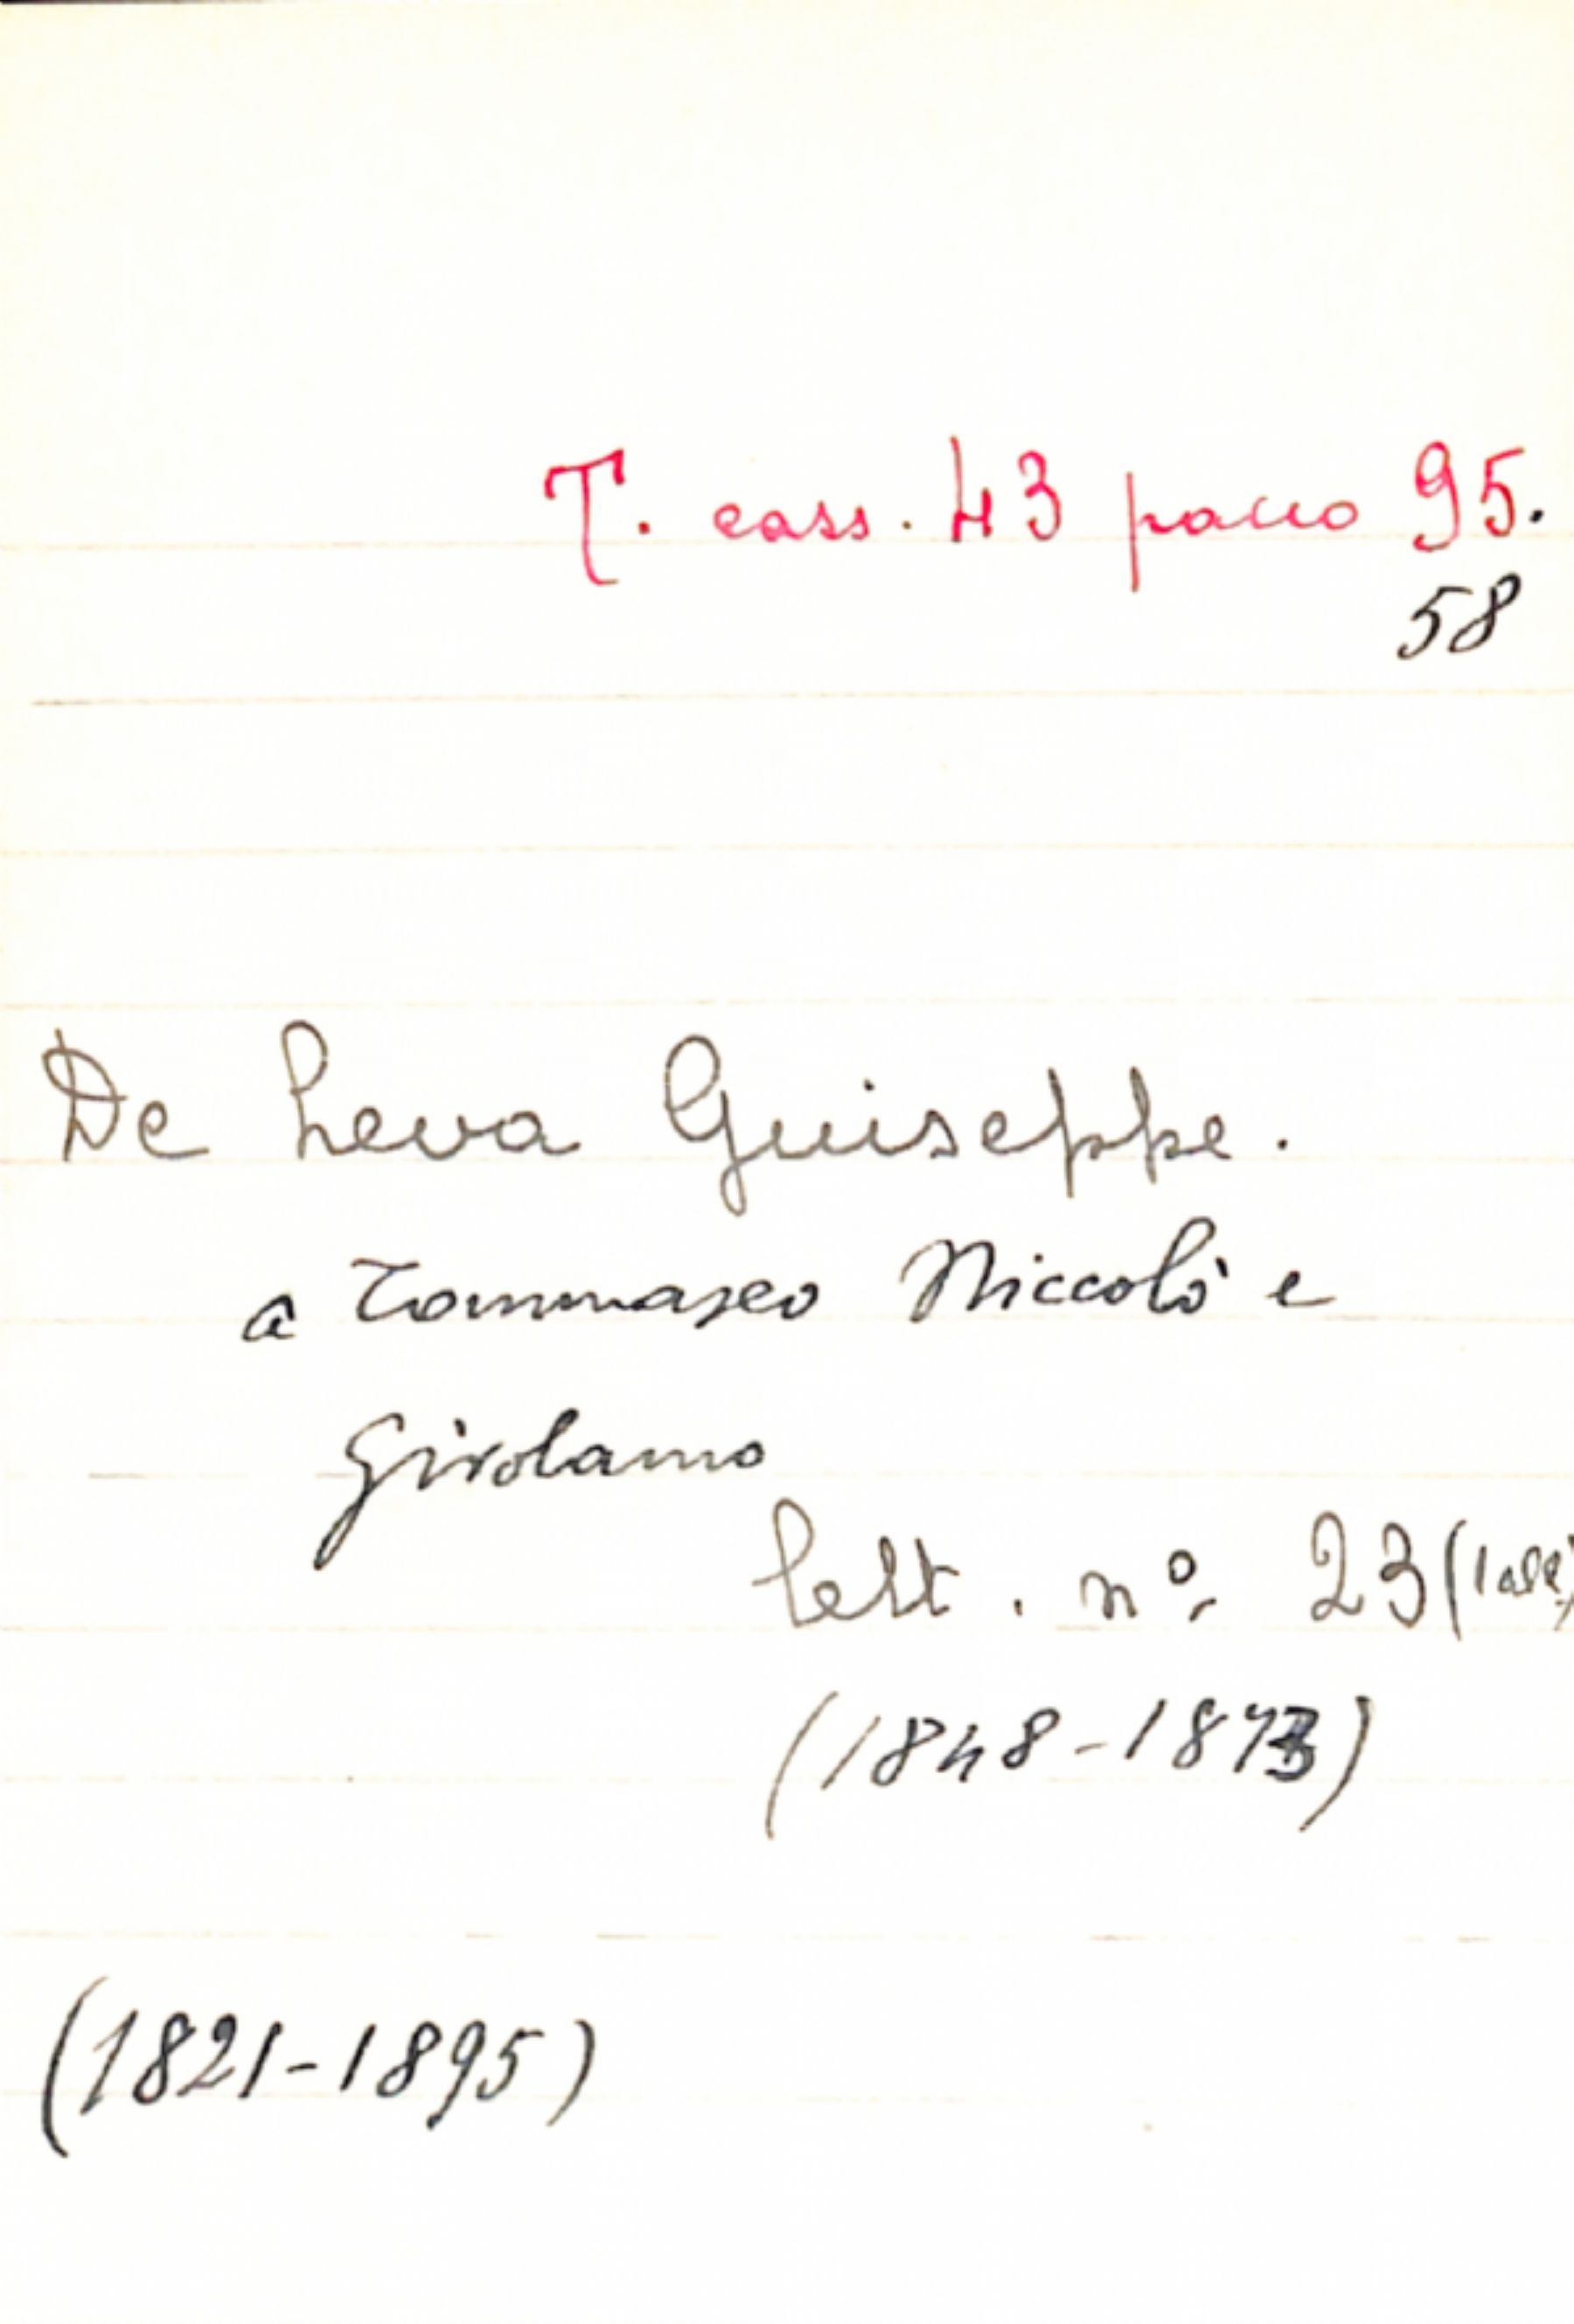 T. cass. 43 pacco 95.
58
De Leva Guiseppe.
a Tommaseo Niccolò e
Girolamo
lett. n.º 23 (1 all.)
(1848-1873)
(1821-1895)